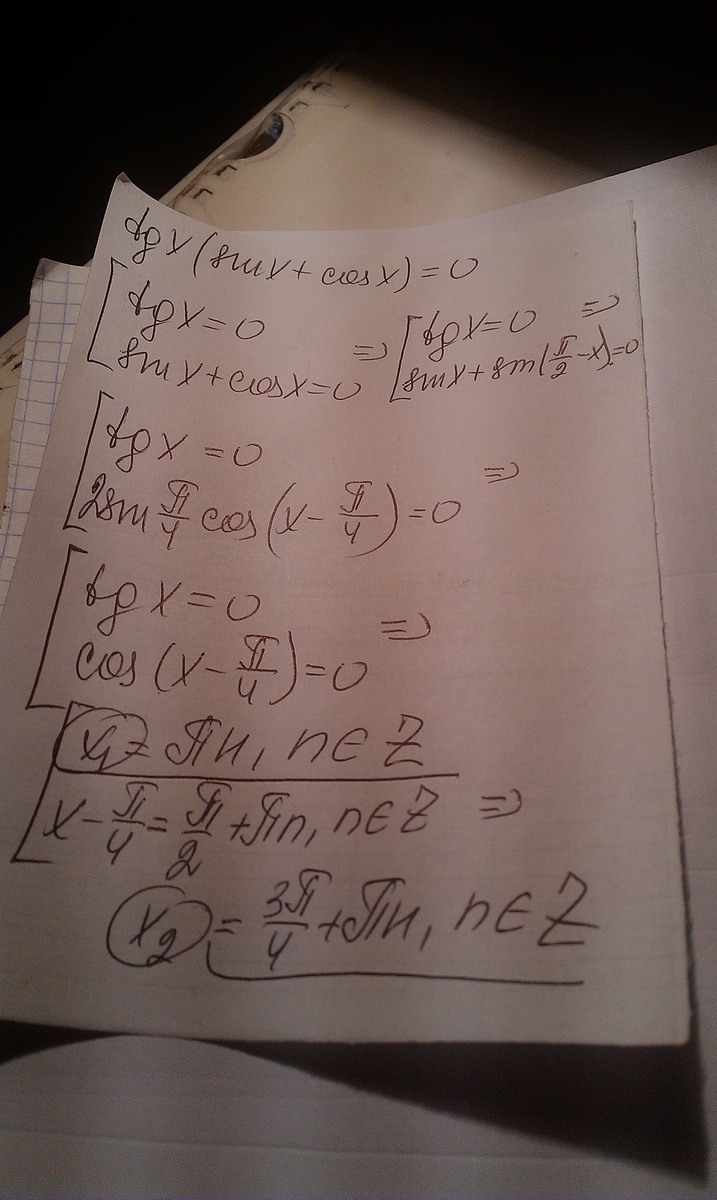 tg x (sin x + cos x) = 0
[ tg x = 0
sin x + cos x = 0 => [ tg x = 0 =>
sin x + sin(π/2 - x) = 0
[ tg x = 0
2 sin π/4 cos(x - π/4) = 0 =>
[ tg x = 0
cos(x - π/4) = 0 =>
[ x₁ = πn, n ∈ Z
x - π/4 = π/2 + πn, n ∈ Z =>
x₂ = 3π/4 + πn, n ∈ Z